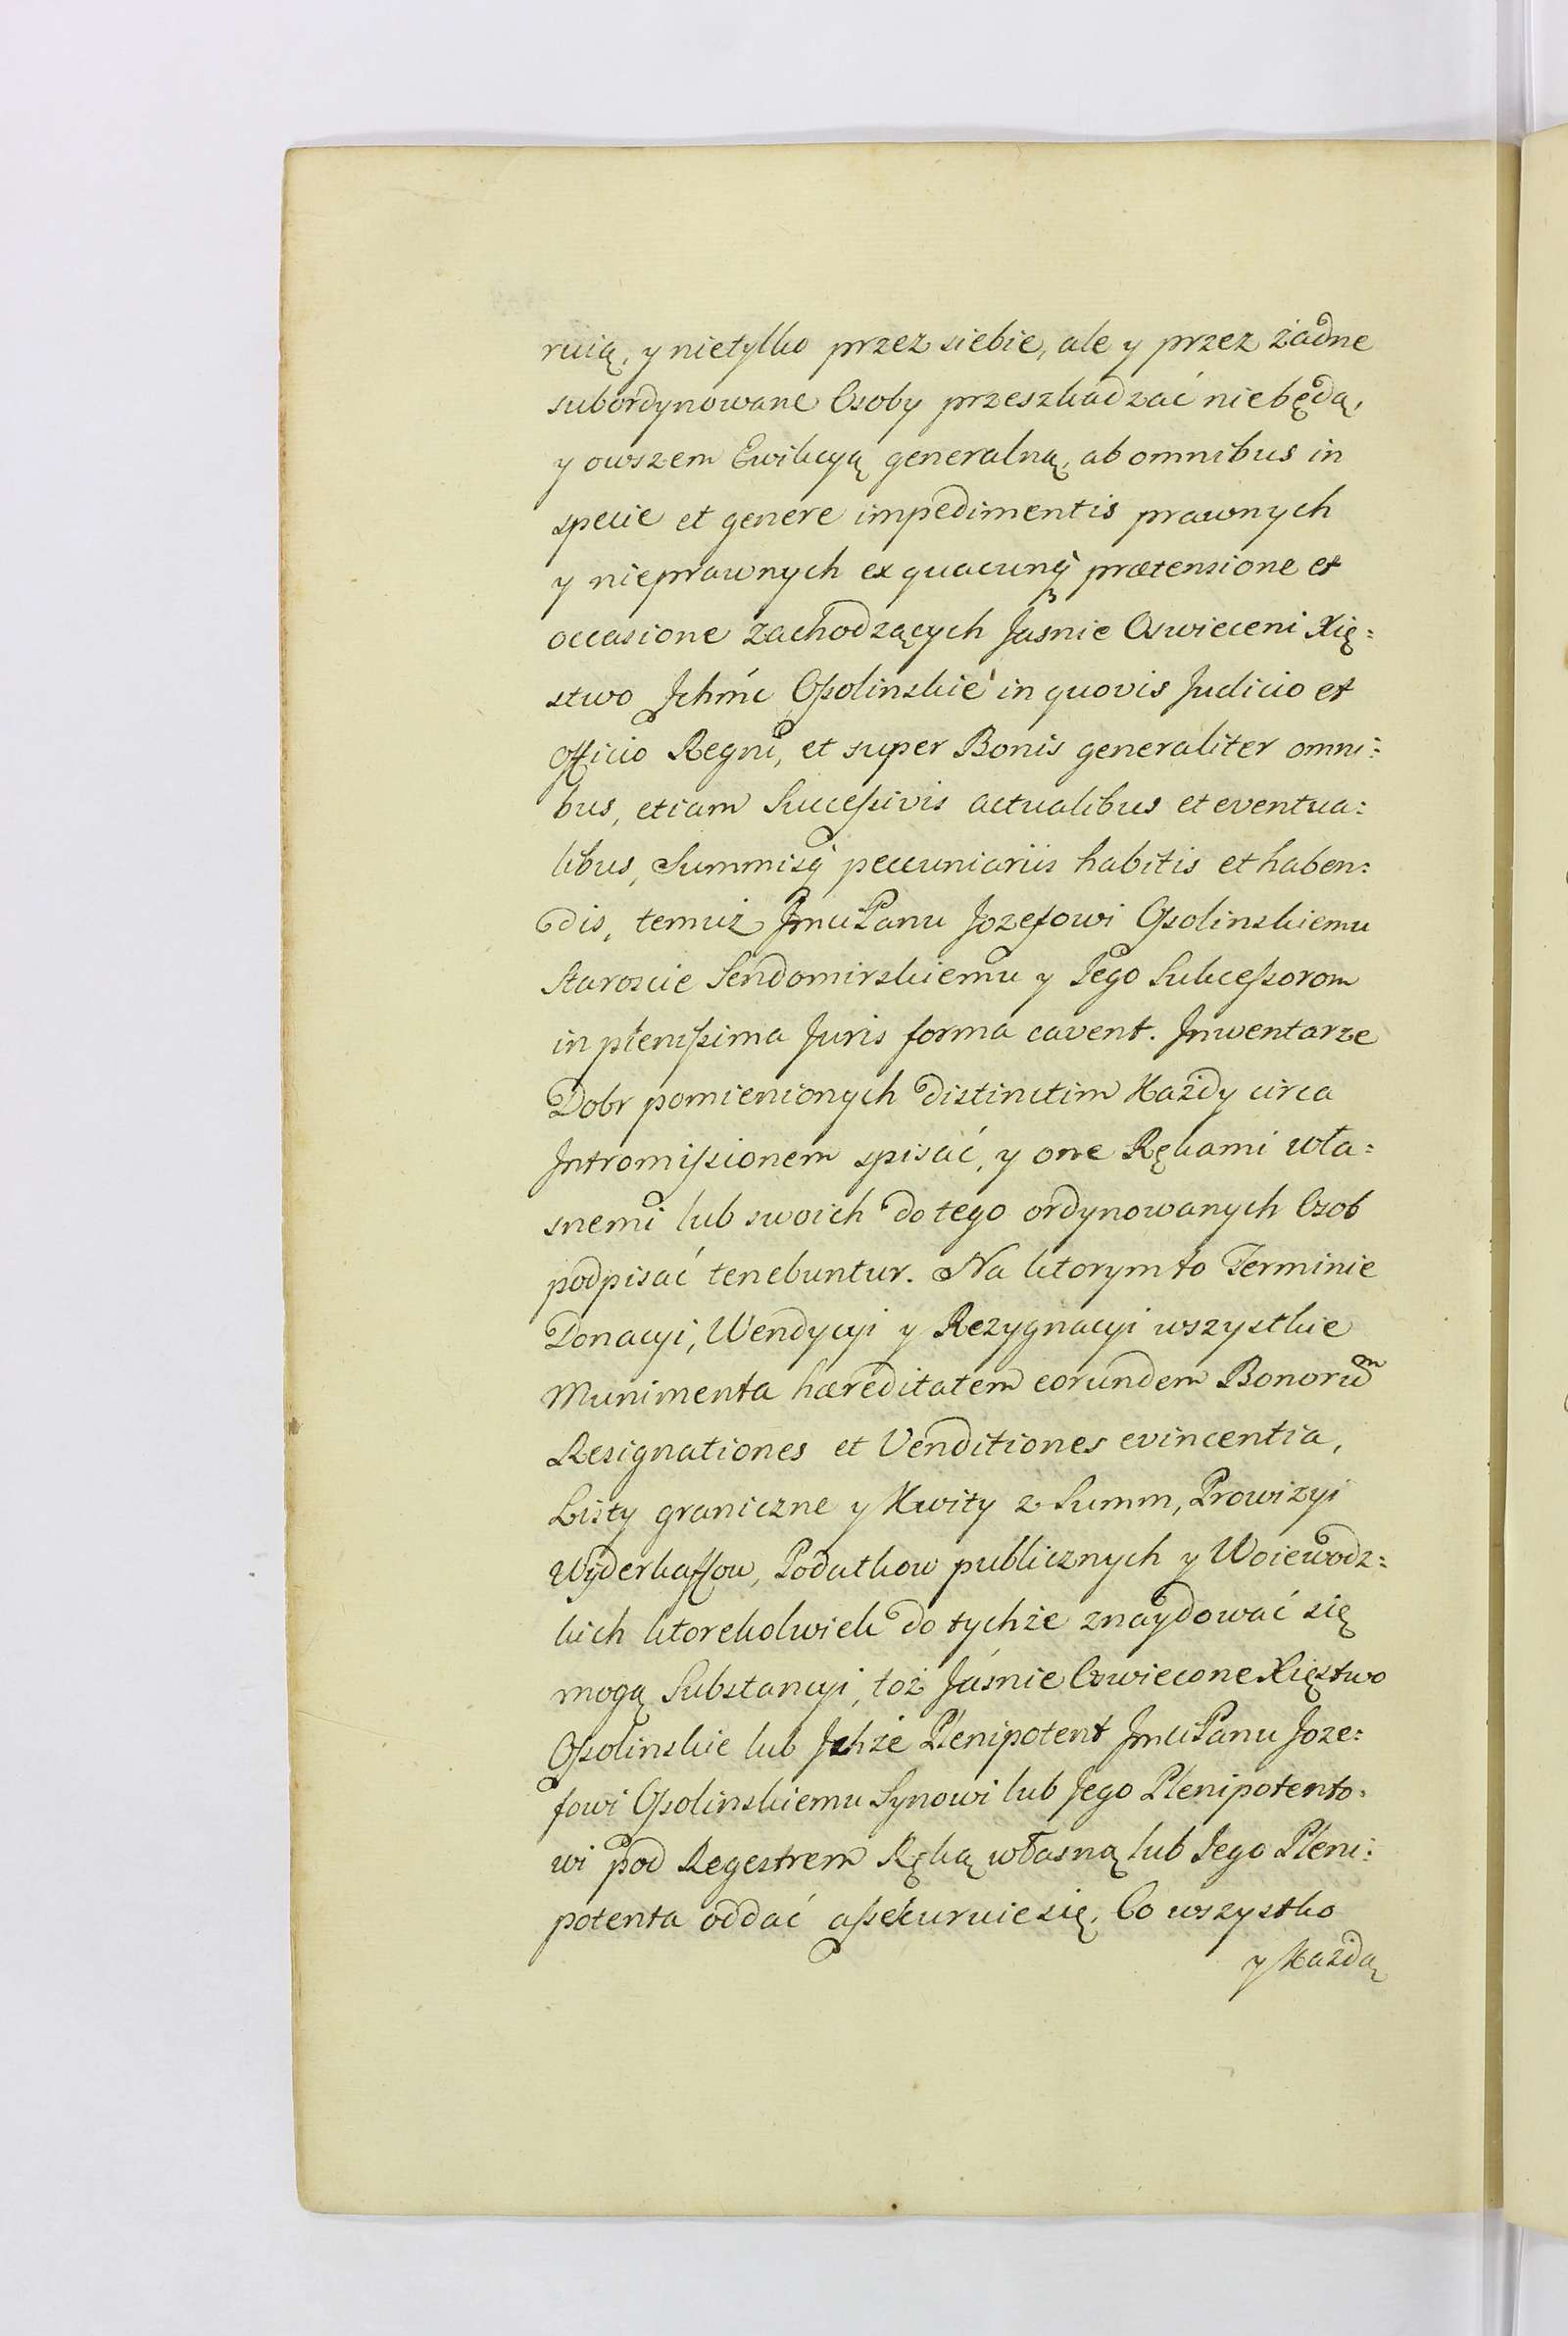 ruią, y nietylko przez siebie, ale y przez żadne
subordynowane Osoby przeszkadzać niebędą,
y owszem Ewikcyą generalną, ab omnibus in
specie et genere impedimentis prawnych
y nieprawnych ex quacunq prætensione et
occasione zachodzących Jaśnie Oswieceni Xię=
stwo Jchmć Ossolinskie in quovis Judicio et
Officio Regni, et super Bonis generaliter omni=
bus, etiam Successivis actualibus et eventua=
libus, Summisq pecuniariis habitis et haben=
dis, temuż JmciPanu Jozefowi Ossolinskiemu
Staroscie Sendomirskiemu y Jego Sukcessorom
in plenissima Juris forma cavent. Jnwentarze
Dobr pomienionych distinctim Każdy circa
Jntromissionem spisać, y one Rękami wła=
snemi lub swoich do tego ordynowanych Osob
podpisać tenebuntur. Na ktorym to Terminie
Donacyi, Wendycyi y Rezygnacyi wszystkie
Munimenta hæreditatem eorundem Bonorum
Resignationes et Venditiones evincentia,
Listy graniczne y Kwity z Summ, Prowizyi
Wyderkaffow, Podatkow publicznych y Woiewodz=
kich ktorekolwiek do tychże znaydować się
mogą Substancyi, toż Jaśnie Oswiecone Xięstwo
Ossolinskie lub Jchże Plenipotent JmciPanu Joze=
fowi Ossolinskiemu Synowi lub Jego Plenipotento=
wi pod Regestrem Ręką własną lub Jego Pleni=
potenta oddać assekuruie się. Co wszystko
y Każdą